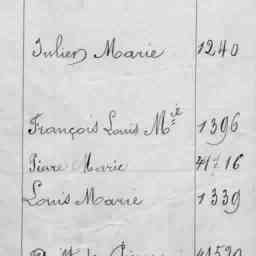 Julien Marie 1240
François Louis Mie 1396
Pierre Marie 41716
Louis Marie 1339